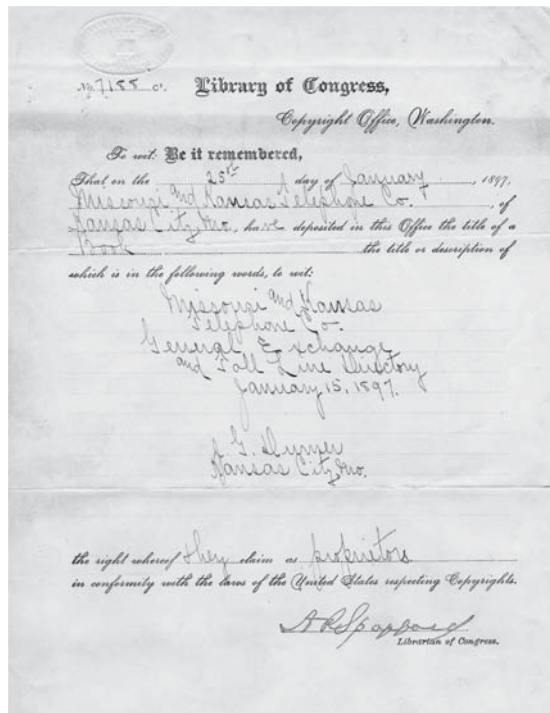 No. 7188 C.
Library of Congress,
Copyright Office, Washington.
To wit: Be it remembered,
That on the 25th day of January, 1897,
Missouri and Kansas Telephone Co., of
Kansas City, Mo., have deposited in this Office the title of a
Book the title or description of
which is in the following words, to wit:
Missouri and Kansas
Telephone Co.
General Exchange
and Toll Line Directory
January 15, 1897.
G.
Kansas City, Mo.
the right whereof they claim as proprietors
in conformity with the laws of the United States respecting Copyrights.
A R Spofford
Librarian of Congress.